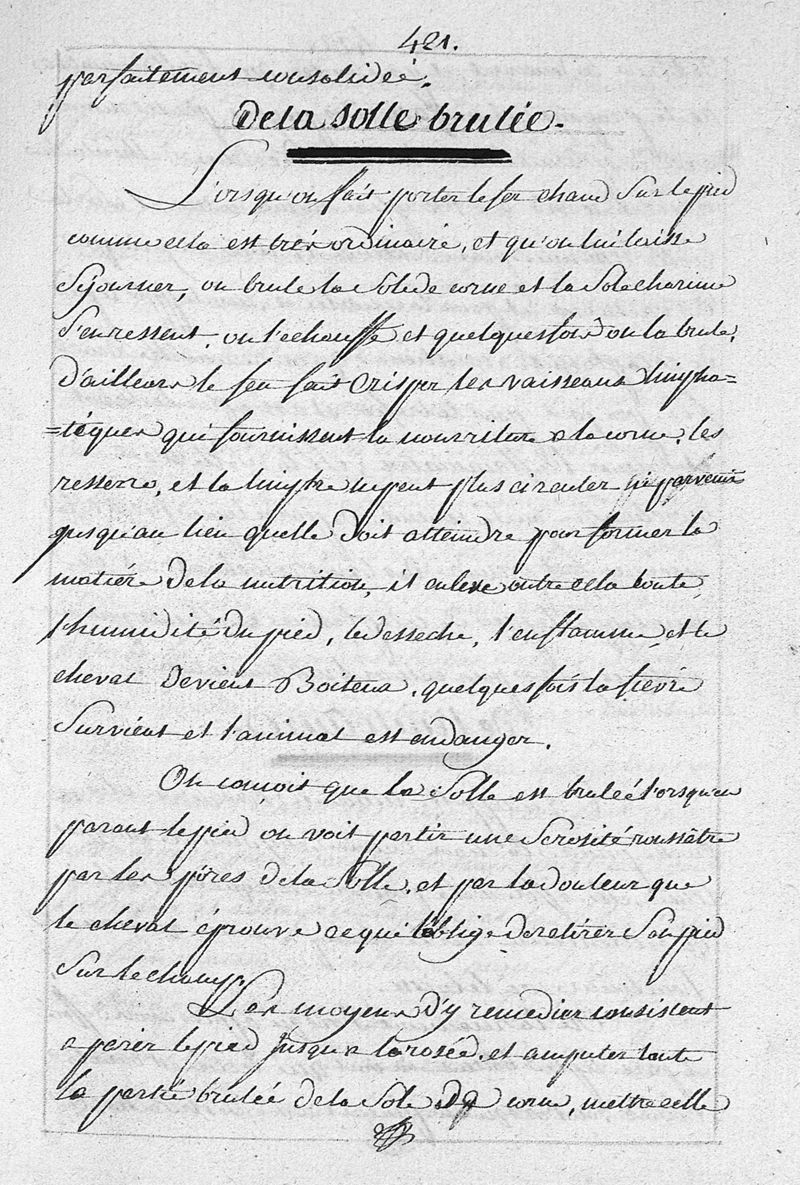 421.
parfaitement consolidée.
De la solle brulée.
Lorsqu'on fait porter le fer chaud sur le pied
comme cela est trés ordinaire, et qu'on lui laisse
séjourner, on brule la sole de corne et la sole charnue
s'en ressent, on l'echauffe et quelques fois on la brule,
d'ailleurs le feu fait crisper les vaisseaux limpha=
=tiques qui fournissent la nourriture a la corne, les
resserre, et la limphe ne peut plus circuler ni parvenir
jusqu'au lieu quelle doit atteindre pour former la
matiére de la nutrition, il enleve outre cela toute
l'humidité du pied, le desseche, l'enflamme, et le
cheval devient Boiteux, quelques fois la fievre
survient et l'animal est en danger.
On connoit que la solle est brulée lorsqu'en
parant le pied on voit partir une serosité roussâtre
par les pores de la solle, et par la douleur que
le cheval éprouve ce qui l'oblige de retirer son pied
sur le champ.
Les moyens d'y remedier consistent
a parer le pied jusqu'a la rosée, et amputer toute
la partie brulée de la sole de corne, mettre celle